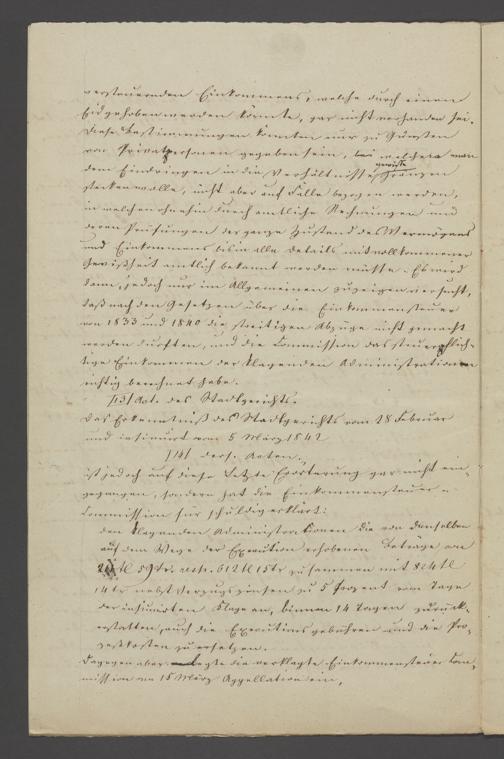 versteuernden Einkommens, welche durch einen
Eid gehoben werden könnte, gar nicht vorhanden sei.
Diese Bestimmungen könnten nur zu Gunsten
von Privatpersonen gegeben sein, bei welchen man
dem Eindringen in die Verhältnisse gewisse Grenzen
stecken wolle, nicht aber auf Fälle bezogen werden,
in welchen ohnehin durch amtliche Rechnungen und
deren Prüfungen der ganze Zustand des Vermögens
und Einkommens bis in alle Details mit vollkommener
Gewißheit amtlich bekannt werden müsse. Es wird
dann, jedoch nur im Allgemeinen zu zeigen versucht,
daß nach den Gesetzen über die Einkommensteuer
von 1833 und 1840 die streitigen Abzüge nicht gemacht
werden dürften, und die Commission das steuerpflich-
tige Einkommen der klagenden Administrationen
richtig berechnet habe.
[13] Act. des Stadtgerichts.
Das Erkenntniß des Stadtgerichts vom 28 Februar
und insinuirt vom 5 März 1842
[14] ders. Acten.
ist jedoch auf diese letzte Erörterung gar nicht ein-
gegangen, sondern hat die Einkommensteuer-
Commission für schuldig erklärt:
den klagenden Administrationen die von denselben
auf dem Wege der Execution erhobenen Beträge von
59 resp. 612 fl 15 zusammen mit 824 fl
14 nebst Verzugszinsen zu 5 Prozent vom Tage
der insinuirten Klage an, binnen 14 Tagen zurück-
erstatten, auch die Executionsgebühren und die Pro-
zeßkosten zu ersetzen.
Dagegen aber legte die verklagte Einkommensteuer Com-
mission am 15 März Appellation ein,